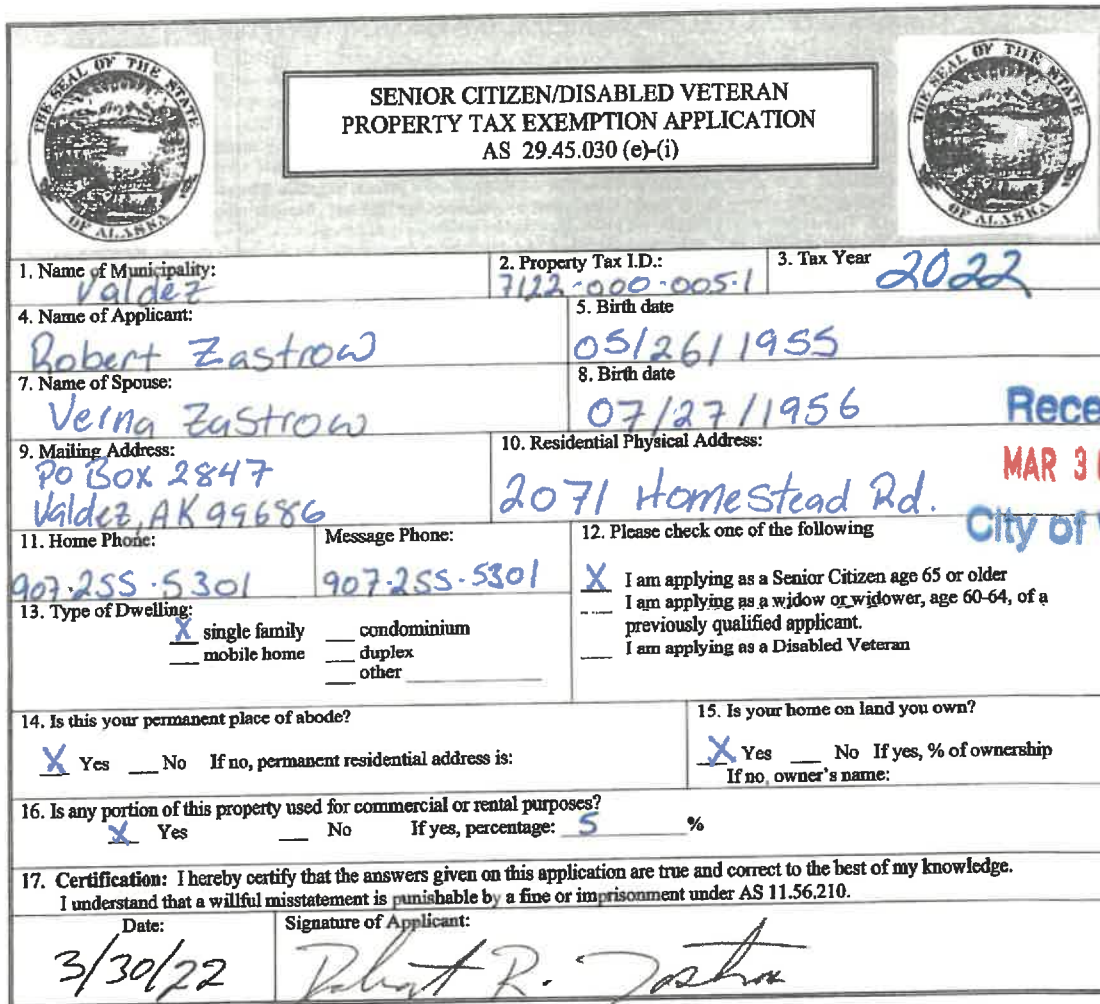 THE SEAL OF THE STATE OF ALASKA
SENIOR CITIZEN/DISABLED VETERAN
PROPERTY TAX EXEMPTION APPLICATION
AS 29.45.030 (e)-(i)
THE SEAL OF THE STATE OF ALASKA
1. Name of Municipality:
Valdez
2. Property Tax I.D.:
7122-000-005-1
3. Tax Year 2022
4. Name of Applicant:
Robert Zastrow
5. Birth date
05/26/1955
7. Name of Spouse:
Verna Zastrow
8. Birth date
07/27/1956
Rece
9. Mailing Address:
PO Box 2847
Valdez, AK 99686
10. Residential Physical Address:
2071 Homestead Rd.
MAR 3
City of
11. Home Phone:
907-255-5301
Message Phone:
907-255-5301
12. Please check one of the following
X I am applying as a Senior Citizen age 65 or older
___ I am applying as a widow or widower, age 60-64, of a
previously qualified applicant.
___ I am applying as a Disabled Veteran
13. Type of Dwelling:
X single family ___ condominium
___ mobile home ___ duplex
___ other ___
14. Is this your permanent place of abode?
X Yes ___ No If no, permanent residential address is:
15. Is your home on land you own?
X Yes ___ No If yes, % of ownership
If no, owner's name:
16. Is any portion of this property used for commercial or rental purposes?
X Yes ___ No If yes, percentage: 5 %
17. Certification: I hereby certify that the answers given on this application are true and correct to the best of my knowledge.
I understand that a willful misstatement is punishable by a fine or imprisonment under AS 11.56.210.
Date:
3/30/22
Signature of Applicant:
Robert R. Zastrow